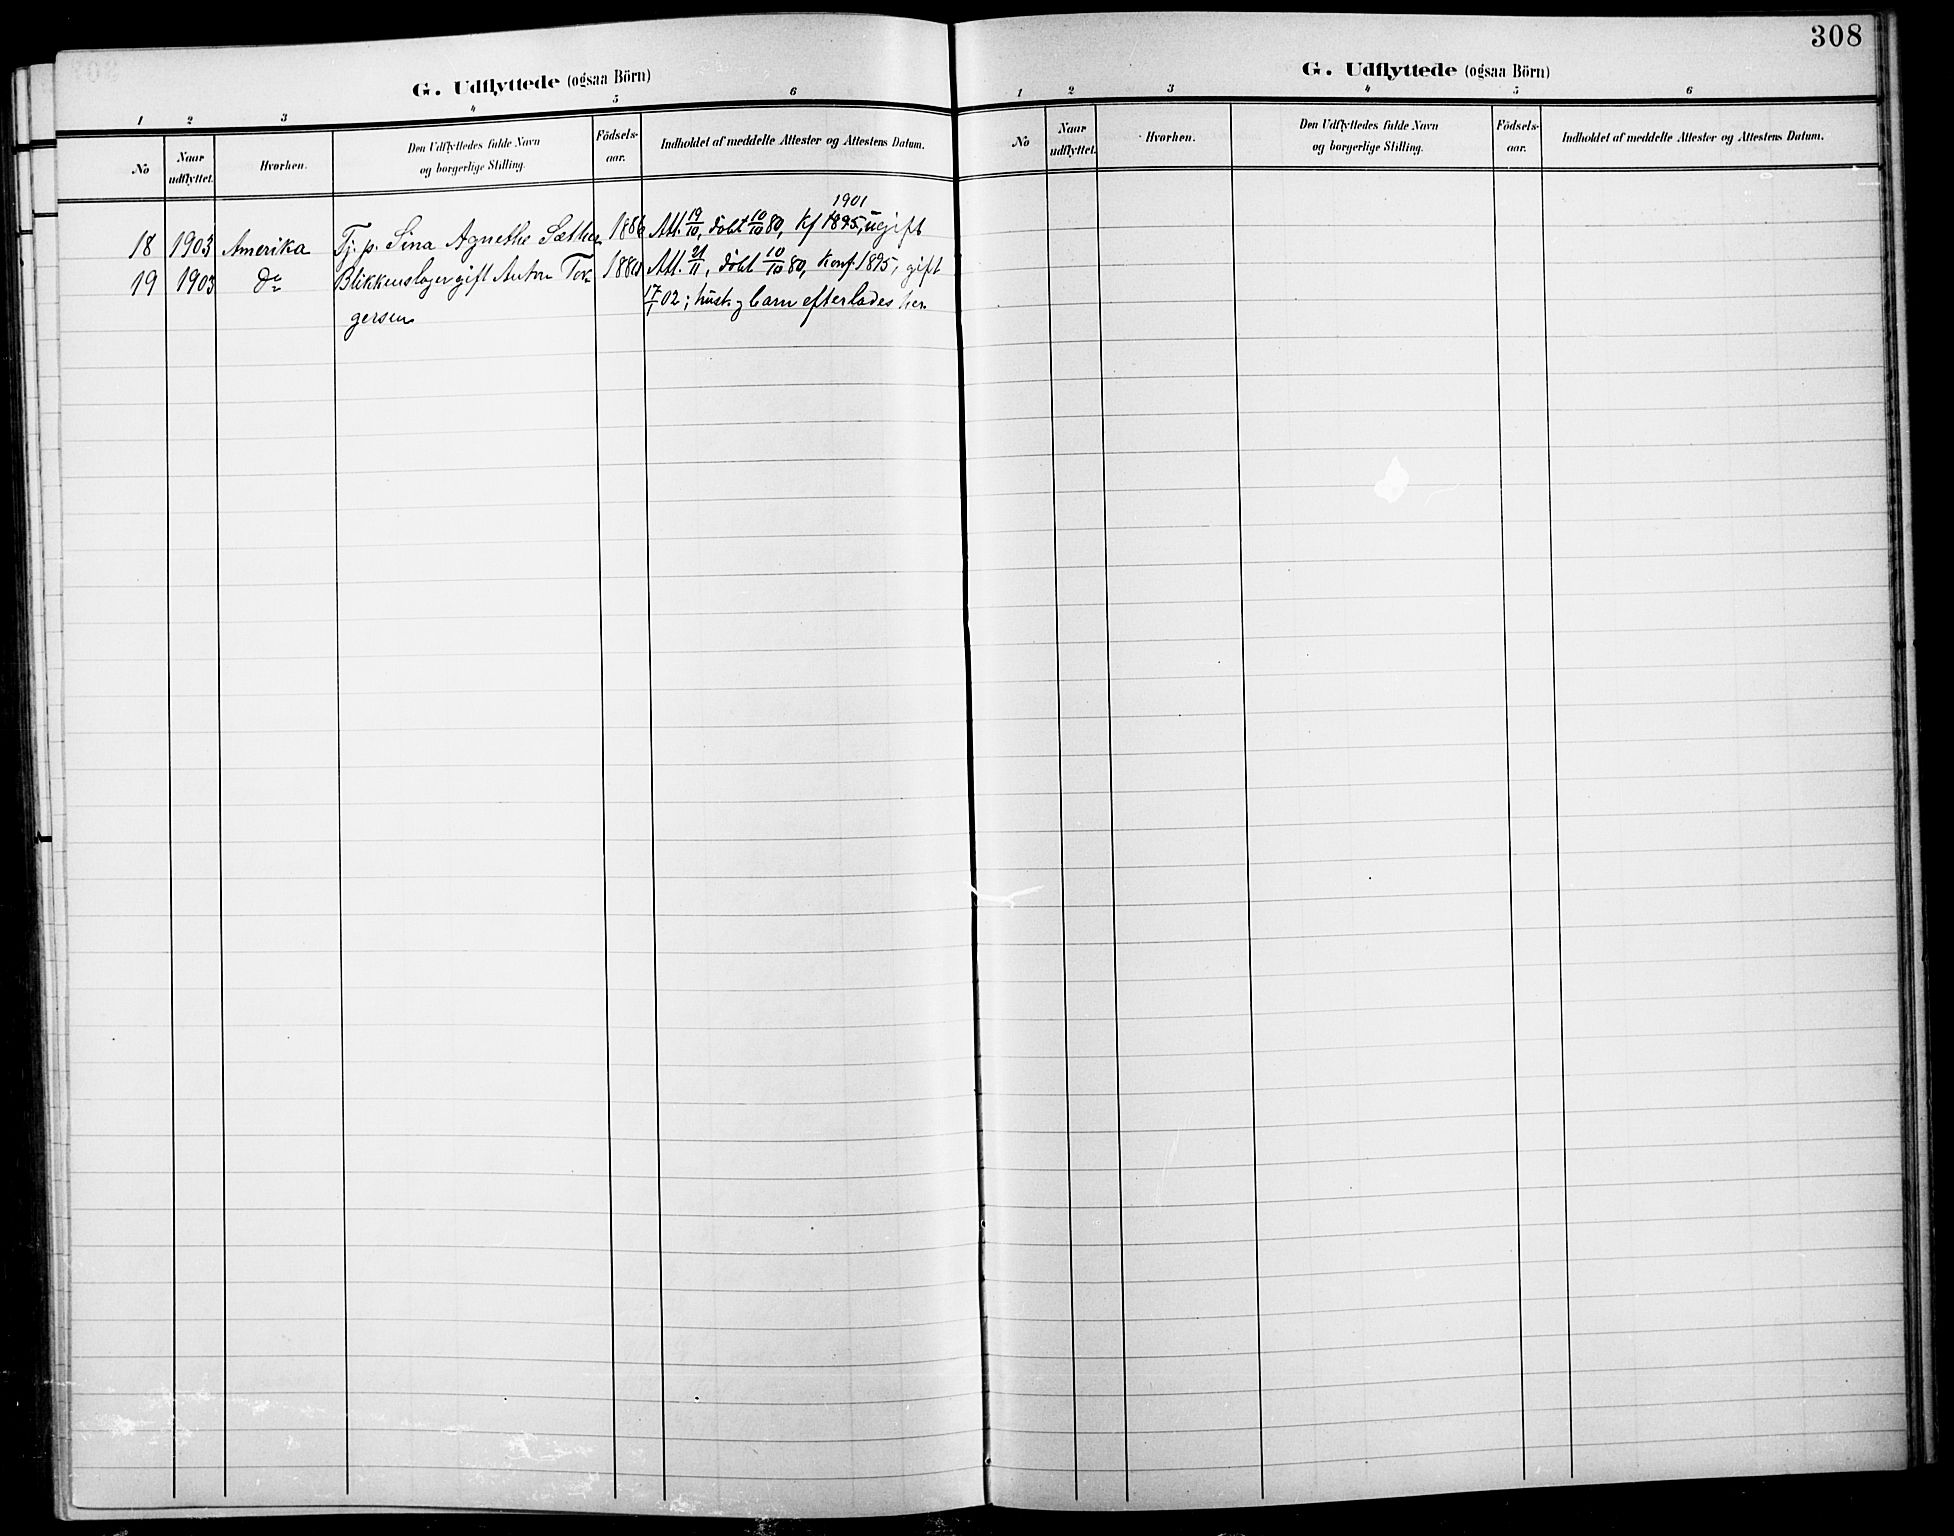 308
G. Udflyttede (ogsaa Börn)
1 2 3 4 5 6
No
Naar udflyttet.
Hvorhen.
Den Udflyttedes fulde Navn
og borgerlige Stilling.
Födsels-
aar.
Indholdet af meddelte Attester og Attestens Datum.
1901
18 1903 Amerika Tj. p. Sina Agnethe Sæther 1886 Att. 19/10, döbt 10/10 80, Kf 1895, ugift
19 1903 do Blikkenslager gift Anton Tor- 1880 Att. 21/11, döbt 10/10 80, Konf. 1895, gift
gersen 17/1 02; hust. og barn efterlades her
G. Udflyttede (ogsaa Börn)
1 2 3 4 5 6
No
Naar
udflyttet.
Hvorhen.
Den Udflyttedes fulde Navn
og borgerlige Stilling.
Födsels-
aar.
Indholdet af meddelte Attester og Attestens Datum.